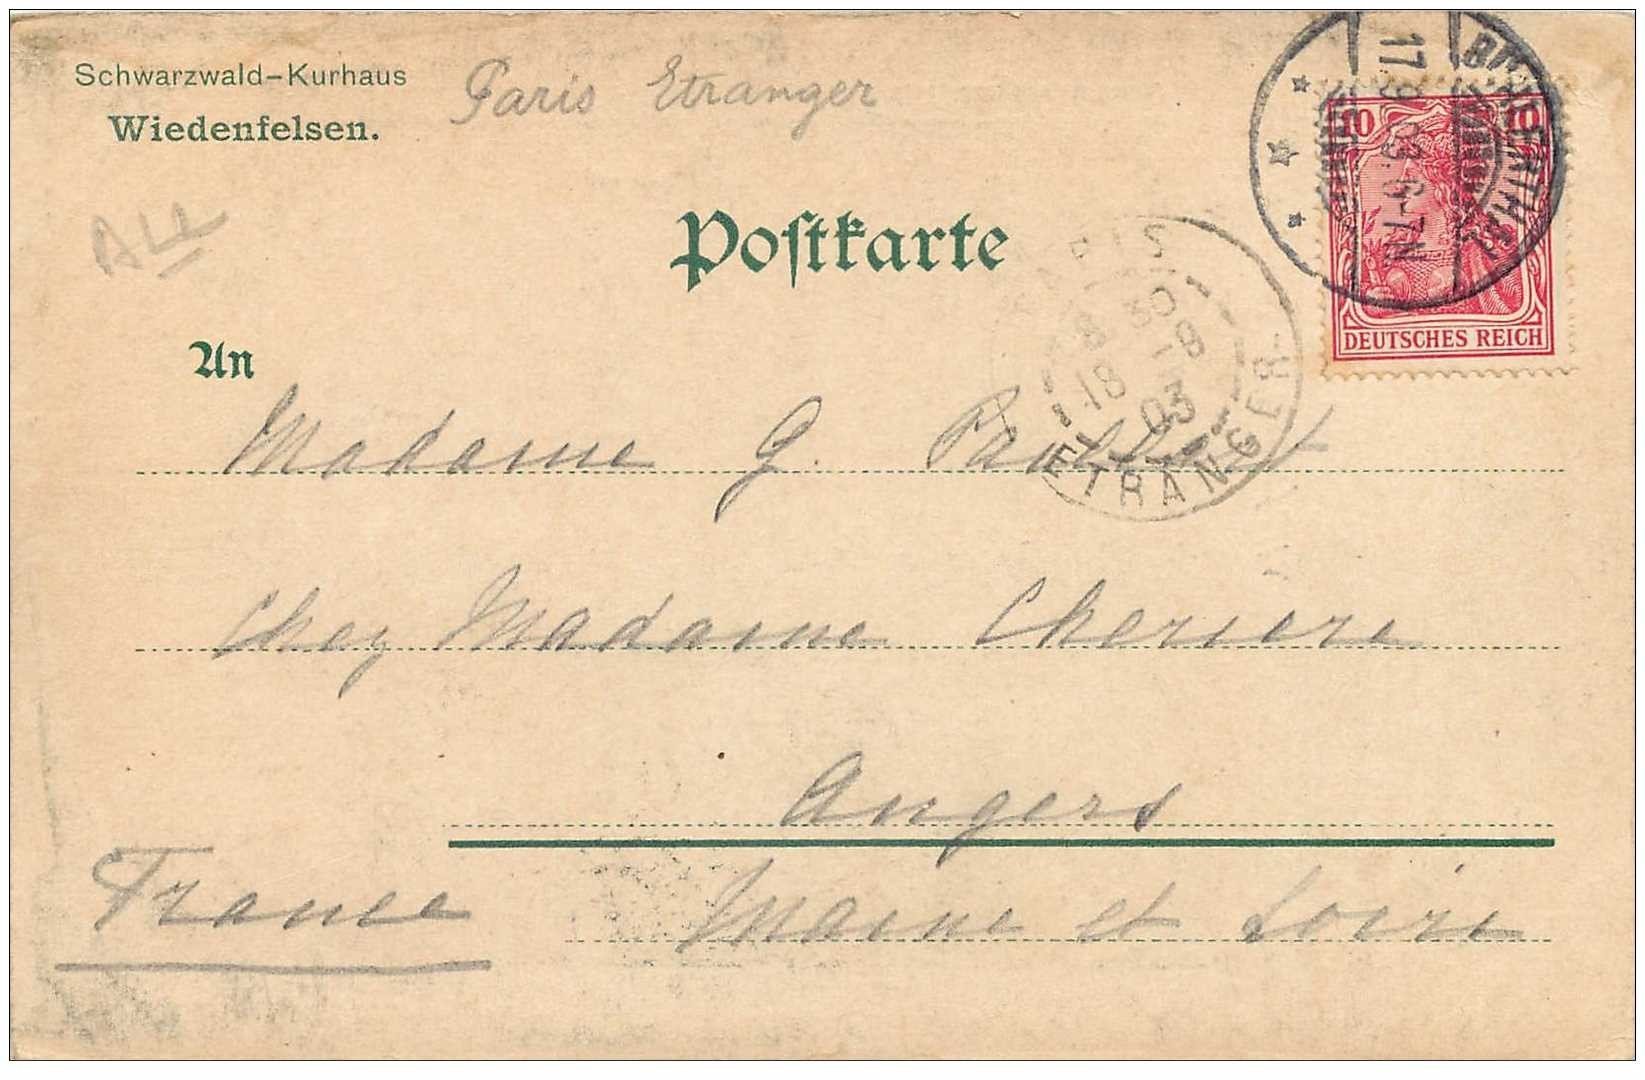 Schwarzwald-Kurhaus
Wiedenfelsen.
Paris Etranger
ALL
Postkarte
10 10
DEUTSCHES REICH
17.9.03. 6-7N
PARIS
8 30
18 -9
03
ETRANGER
An
Madame G.
Chez Madame Cheriere
Angers
France
Maine et Loire